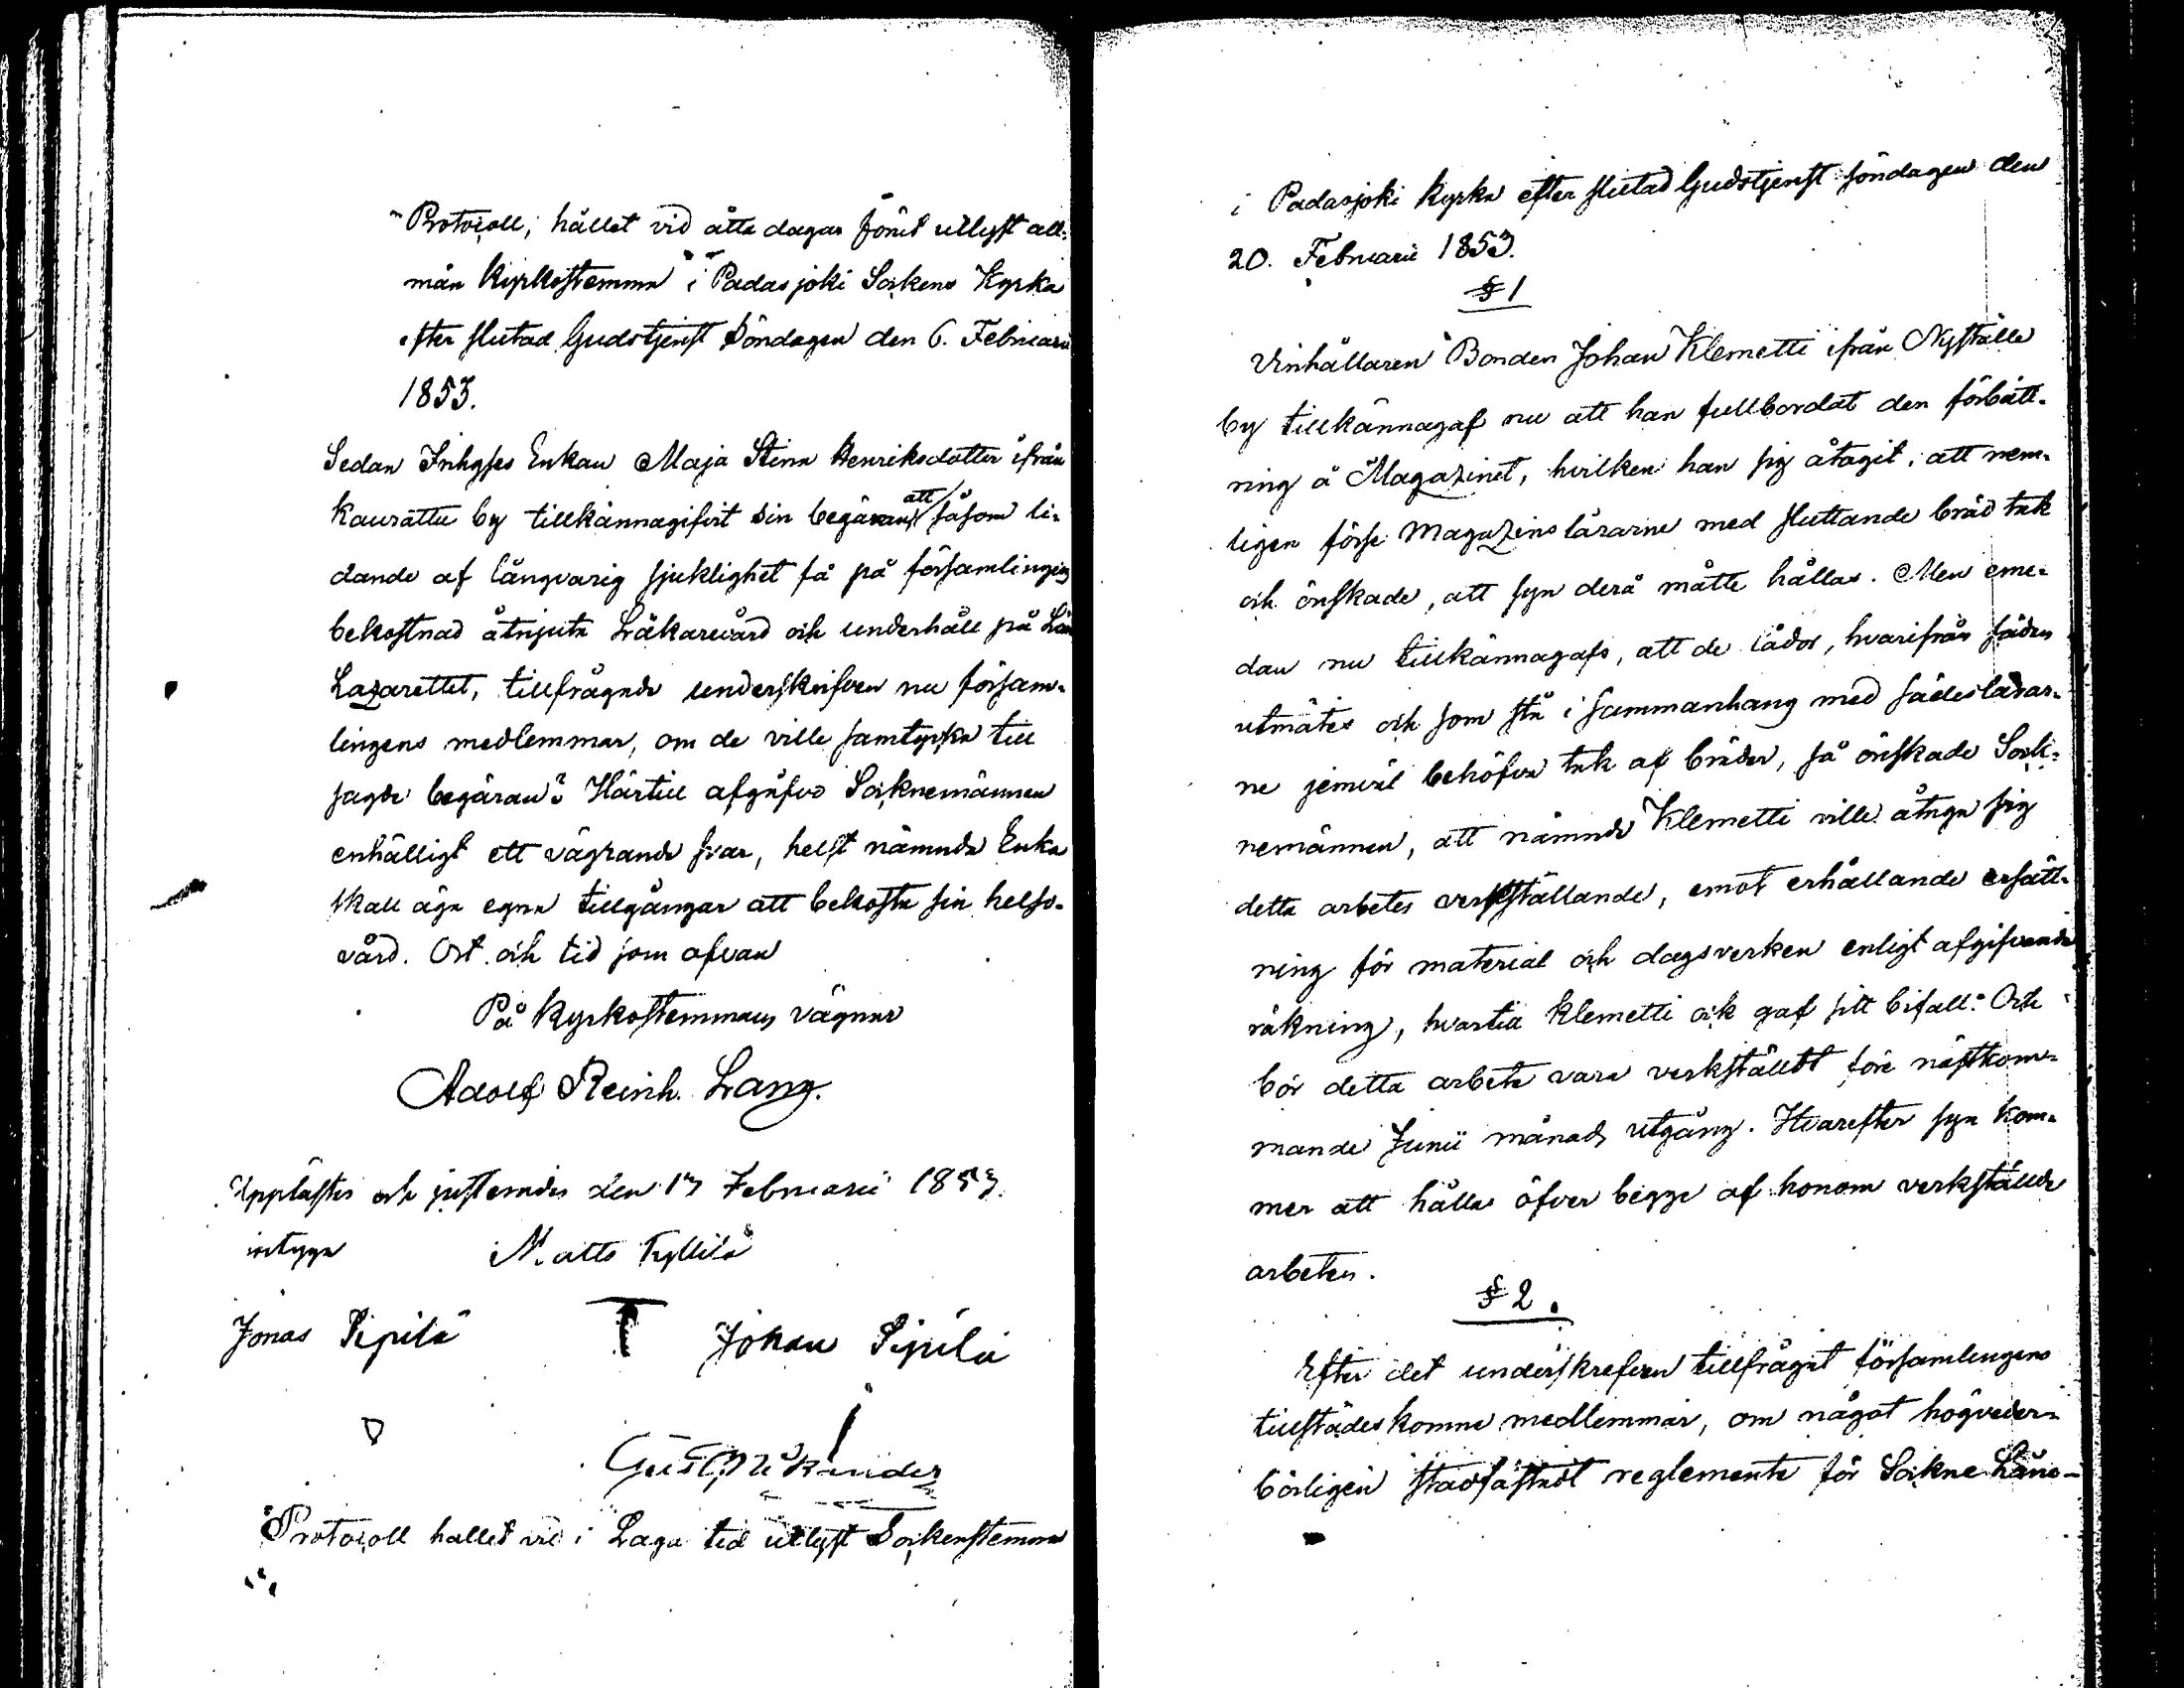 Protocoll, hållet vid åtta dagar förut utlyst all-
män Kyrkostemma i Padasjoki Sockens Kyrka
efter slutad Gudstjenst Söndagen den 6. Februarii
1853.
Sedan Inhyses Enkan Maja Stina Henriksdotter ifrån
Kaurattu by tillkännagifvit sin begäran att såsom li-
dande af långvarig sjuklighet få på församlingens
bekostnad åtnjuta Läkarevård och underhåll på Läns
Lazarettet, tillfrågade underskrifven nu försam-
lingens medlemmar, om de ville samtycka till
sagde begäran? Härtill afgåfvo Socknemännen
enhälligt ett vägrande svar, helst nämnda Enka
skall äga egna tillgångar att bekosta sin helso-
vård. Ort och tid som ofvan
På Kyrkostemmans vägnar
Adolf Reinh. Lang.
Upplästes och justerades den 13 Februarii 1853
intyga Matts Kyllilä
Jonas Sipilä Johan Sipilä
Gust
Protocoll hållet vid i Laga tid utlyst Sockenstemma
i Padasjoki Kyrka efter slutad Gudstjenst söndagen den
20. Februarii 1853.
§ 1
Vinhållaren Bonden Johan Klemetti ifrån Nyställe
by tillkännagaf nu att han fullbordat den förbätt-
ring å Magazinet, hvilken han sig åtagit, att nem-
ligen förse Magazins lårarne med sluttande bräd tak
och önskade, att syn derå måtte hållas. Men eme-
dan nu tillkännagafs, att de lådor, hvarifrån säden
utmätes och som stå i sammanhang med sädeslårar-
ne jemväl behöfva tak af bräder, så önskade Sock-
nemännen, att nämnde Klemetti ville åtaga sig
detta arbetes verkställande, emot erhållande ersätt-
ning för material och dagsverken enligt afgifvande
räkning, hvartill Klemetti ock gaf sitt bifall: Och
bör detta arbete vara verkställdt före nästkom-
mande Junii månads utgång. Hvarefter syn kom-
mer att hållas öfver begge af honom verkställde
arbeten.
§ 2.
Efter det underskrefven tillfrågat församlingens
tillstädeskomne medlemmar, om något högveder-
börligen stadfästadt reglemente för Sockne Låne-